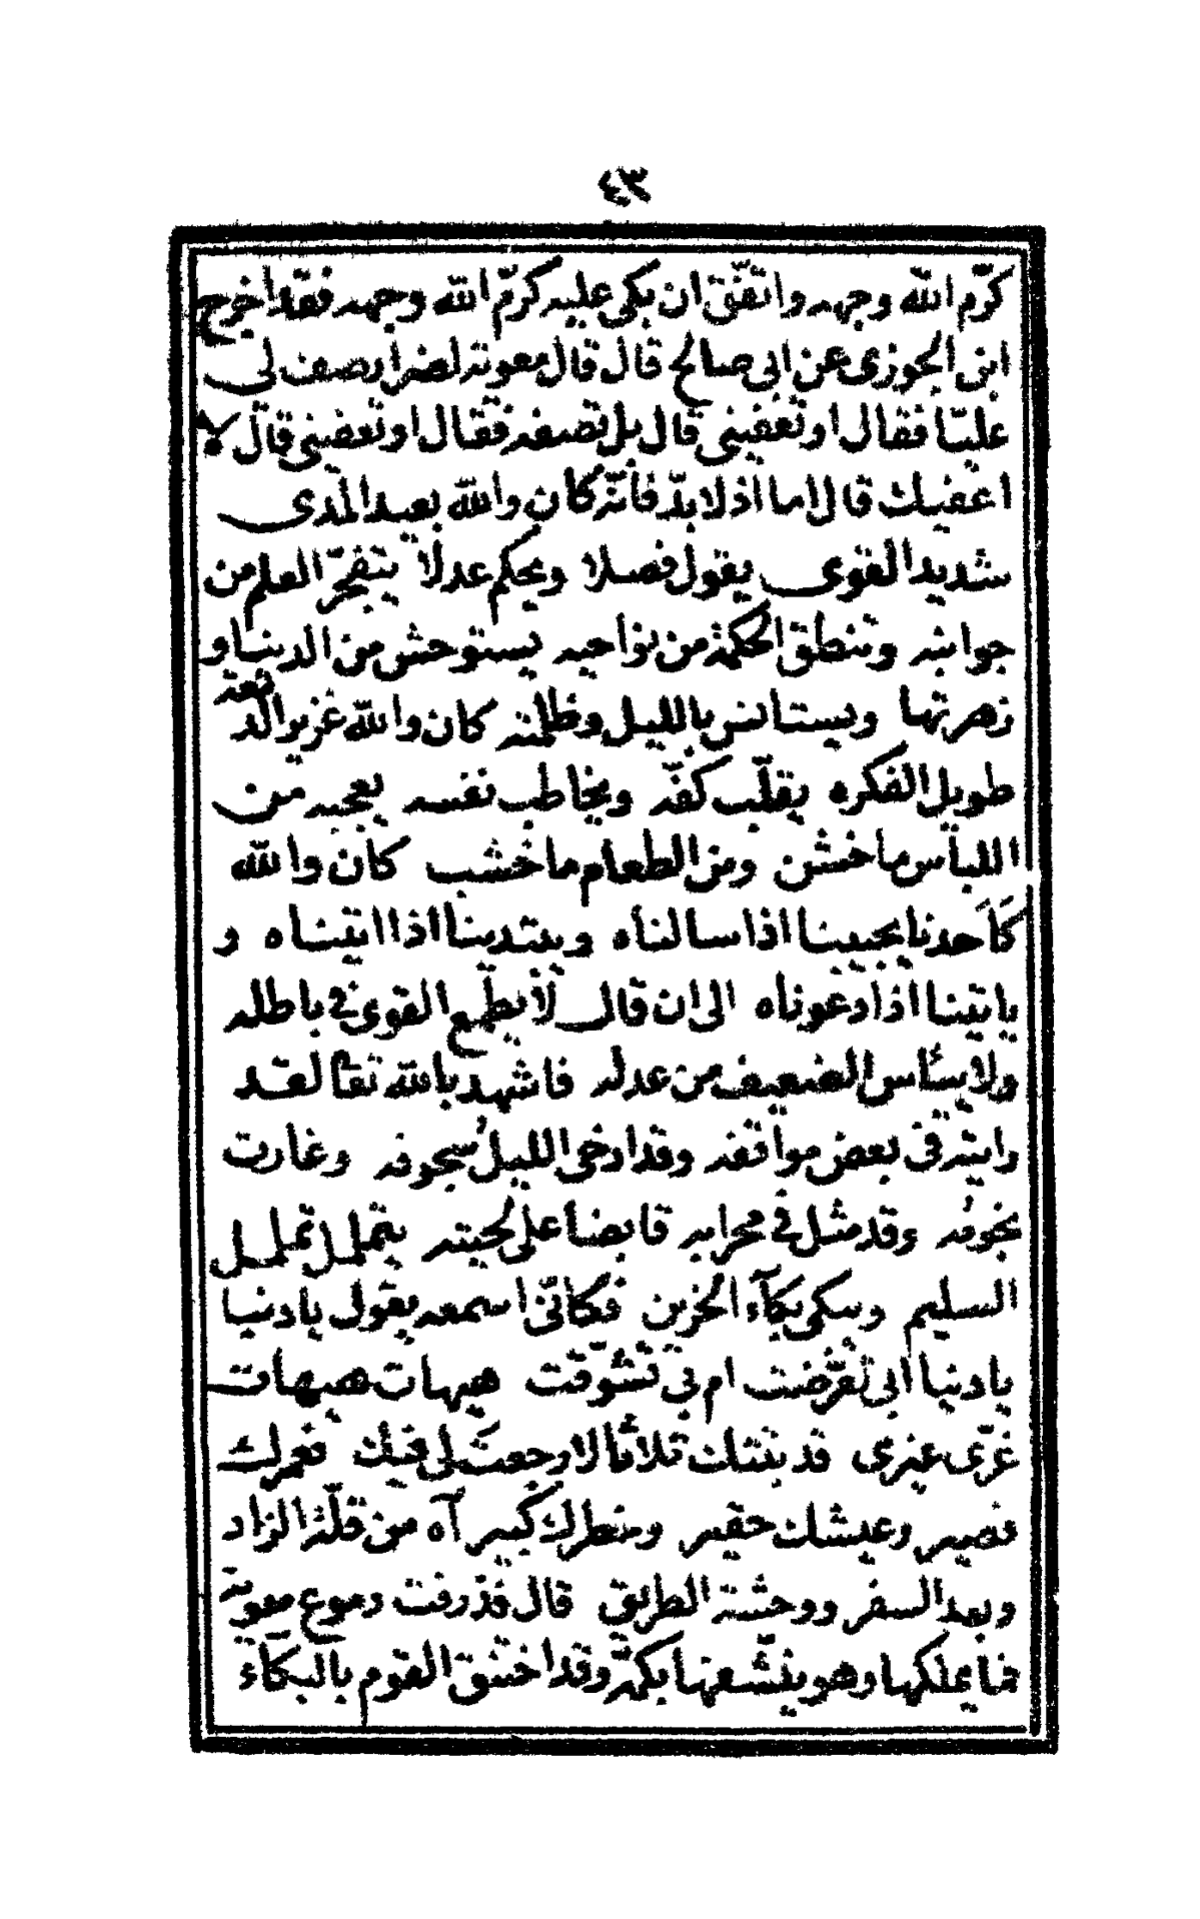 ٤٣
كرّم الله وجهه واتّفق ان بكى عليه كرّم الله وجهه فقد اخرج
ابن الجوزى عن ابى صالح قال قال معوية لضرار صف لى
عليّا فقال او تعفينى قال بل تصفه فقال او تعفينى قال لا
اعفيك قال اما اذ لا بدّ فانّه كان والله بعيد المدى
شديد القوى يقول فصلا ويحكم عدلا يتفجّر العلم من
جوانبه وتنطق الحكمة من نواحيه يستوحش من الدنيا و
زهرتها ويستانس بالليل وظلمته كان والله غزير الدمعة
طويل الفكره يقلّب كفّه ويخاطب نفسه يعجبه من
اللباس ما خشن ومن الطعام ما خشب كان والله
كاحدنا يجيبنا اذا سالناه ويبتدينا اذا اتيناه و
ياتينا اذا دعوناه الى ان قال لا يطمع القوى فى باطله
ولا يياس الضعيف من عدله فاشهد بالله تعالى لقد
رايته فى بعض مواقفه وقد ارخى الليل سجوفه وغارت
نجومه وقد مثل فى محرابه قابضا على لحيته يتململ تململ
السليم ويبكى بكآء الحزين فكانّى اسمعه يقول يا دنيا
يا دنيا ابى تعرّضت ام بى تشوّقت هيهات هيهات
غرّى غيرى قد بتتك ثلاثا لا رجعت لى فيك فعمرك
قصير وعيشك حقير وخطرك كبير آه من قلّة الزاد
وبعد السفر ووحشة الطريق قال فذرفت دموع معوية
فما يملكها وهو ينشّفها بكمّه وقد اختنق القوم بالبكآء